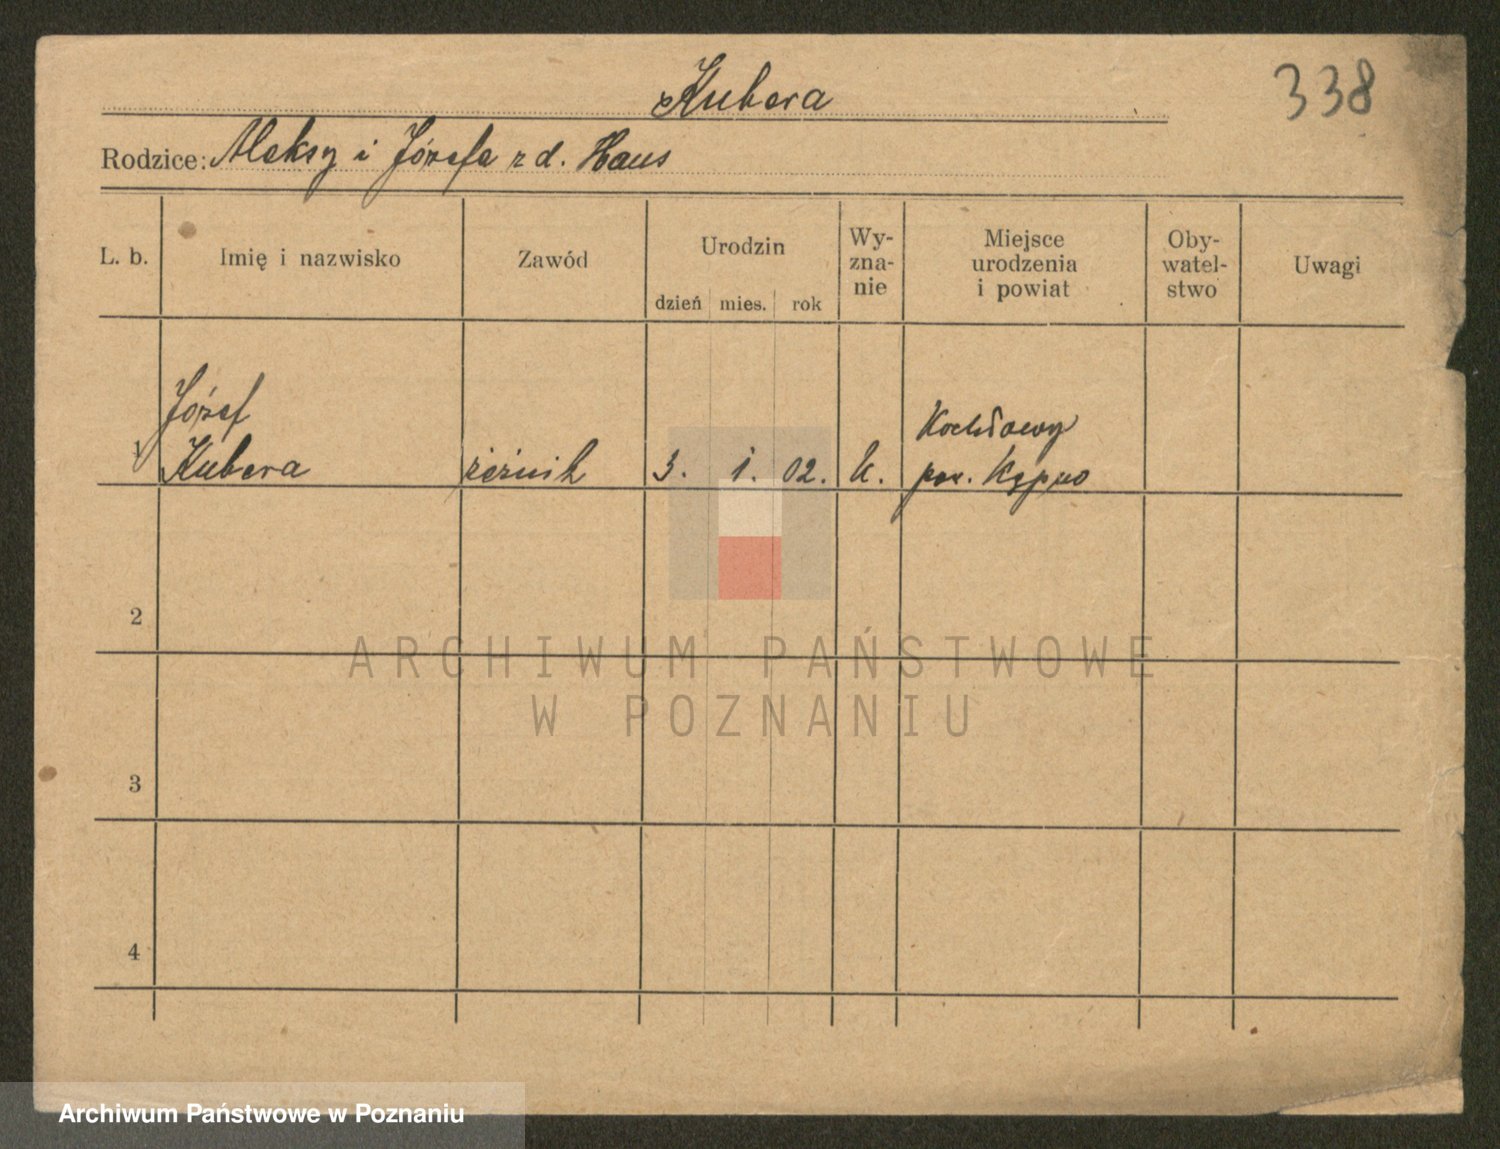 Kubera
338
Rodzice: Aleksy i Józefa z d. Haus
L. b.
Imię i nazwisko
Zawód
Urodzin
dzień mies. rok
Wy-
zna-
nie
Miejsce
urodzenia
i powiat
Oby-
watel-
stwo
Uwagi
Józef
1 Kubera rzeźnik 3. 1. 02. k.
Kochłowy
pow. Kępno
2
3
4
ARCHIWUM PAŃSTWOWE
W POZNANIU
Archiwum Państwowe w Poznaniu